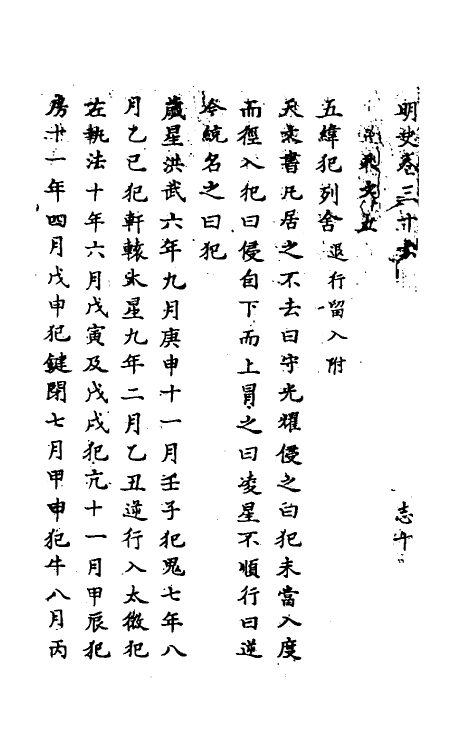 明史卷三十
志十
天文五
五緯犯列舍 退行留入附
天文書凡居之不去曰守光耀侵之曰犯未當入度
而徑入犯曰侵自下而上冒之曰凌星不順行曰逆
今統名之曰犯
歲星洪武六年九月庚申十一月壬子犯鬼七年八
月乙巳犯軒轅大星九年二月乙丑逆行入太微犯
左執法十年六月戊寅及戊戌犯亢十一月甲辰犯
房十一年四月戊申犯鍵閉七月甲申犯牛八月丙